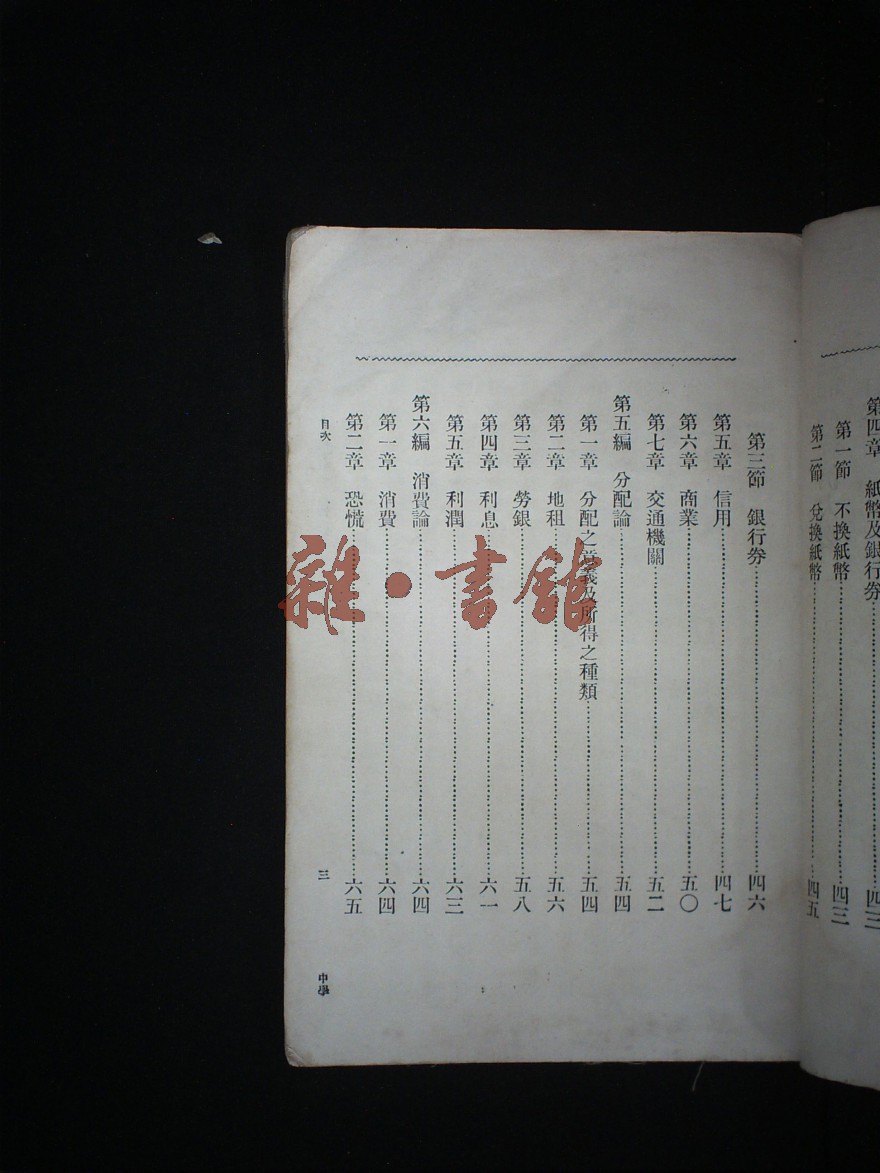 第四章 紙幣及銀行券……四三
第一節 不換紙幣……四三
第二節 兌換紙幣……四五
第三節 銀行券……四六
第五章 信用……四七
第六章 商業……五〇
第七章 交通機關……五二
第五編 分配論……五四
第一章 分配之意義及所得之種類……五四
第二章 地租……五六
第三章 勞銀……五八
第四章 利息……六一
第五章 利潤……六三
第六編 消費論……六四
第一章 消費……六四
第二章 恐慌……六五
目次
三
中學
雜·書館